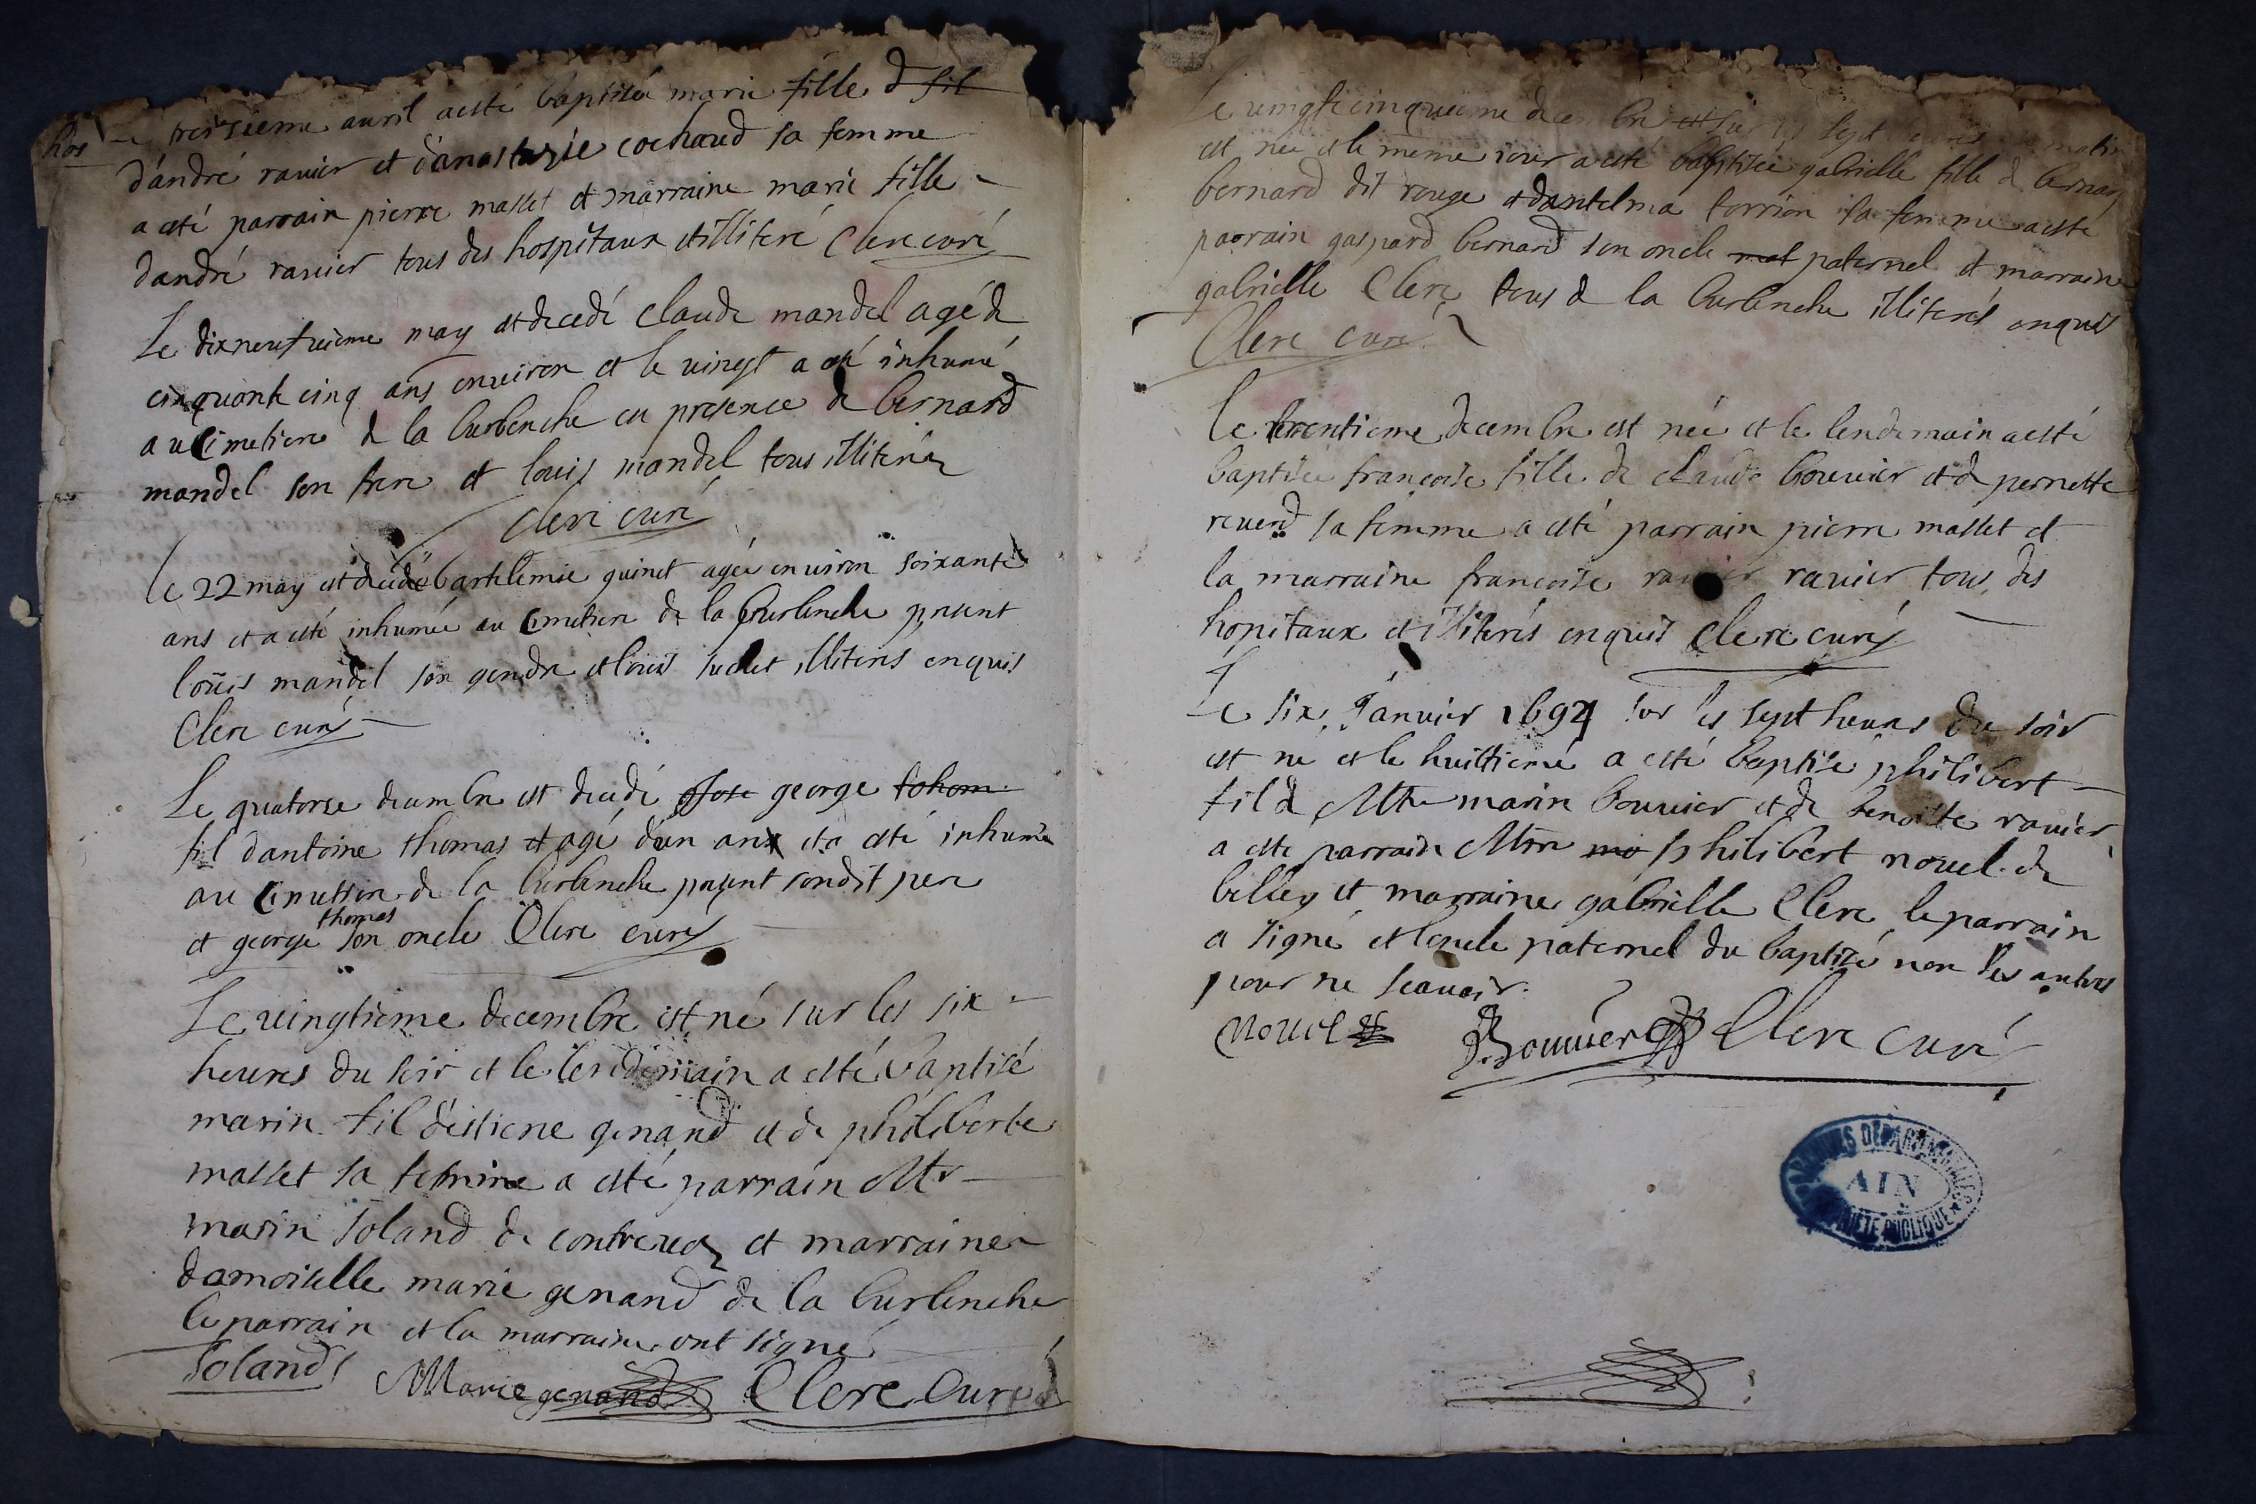 hos
Le treisieme avril a esté baptisée marie fille d fil
d'andré ravier et d'anastazie cochard sa femme
a esté parrain pierre mallet et marraine marie fille
d'andré ravier tous des hospitaux et illiteré Clerc curé
Le dixneufvieme may est decedé claude mandel agé de
cinquante cinq ans environ et le vingt a esté inhumé
au cimetiere de la burbenche en presence de bernard
mandel son frere et louis mandel tous illiterés
Clerc curé
le 22 may est decedée bartelemie guinet agée environ soixante
ans et a esté inhumée au cimetiere de la burbenche present
loüis mandel son gendre et louis suchet illiterés enquis
Clerc curé
Le quatorse decembre est decedé george
fil d'antoine thomas et agé d'un ans et a esté inhumé
au cimettiere de la burbenche present sondit pere
et george thomas son oncle Clerc curé
Le vingtieme decembre est né sur les six
heures du soir et le lendemain a esté baptisé
marin fil d'estiene genand et de philiberte
mallet sa femme a esté parrain Mtr
marin soland de contrevoz et marraine
damoiselle marie genand de la burbenche
le parrain et la marraine ont signé
Soland Marie genand Clerc Curé
Le vingtcinquieme decembre sur les sept heures matin
est née et le meme iour a esté baptisée gabrielle fille de bernard
bernard dit rouge et d'antelma torrion sa femme a esté
parrain gaspard bernard son oncle mat paternel et marraine
gabrielle Clerc tous de la burbenche illiterés enquis
Clerc curé
Le trentieme decembre est née et le lendemain a esté
baptisée françoise fille de claude bouvier et de pernette
reverd sa femme a esté parrain pierre mallet et
la marraine françoise ravier ravier tous des
hopitaux et illiterés enquis Clerc curé
Le six Janvier 1694 sur les sept heures du soir
est né et le huittieme a esté baptisé philibert
fil de Mtre marin bouvier et de benoitte ravier
a esté parrain Mtre philibert novel de
belley et marraine gabrielle Clerc le parrain
a signé et l'oncle paternel du baptizé non les autres
pour ne scavoir.
Novel Bouvier Clerc curé
ARCHIVES DÉPARTEMENTALES
AIN
PROPRIÉTÉ PUBLIQUE